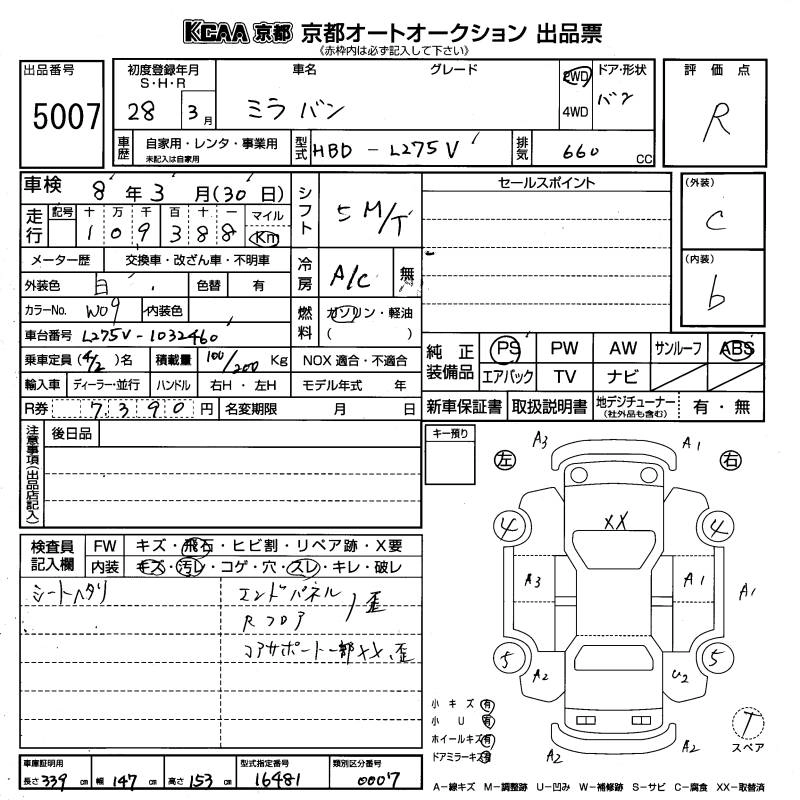 KCAA 京都 京都オートオークション 出品票
《赤枠内は必ず記入して下さい》
出品番号
5007
初度登録年月
S・H・R
28 3月
車名
ミラ バン
グレード
2WD
4WD
ドア・形状
バン
評価点
R
車歴
自家用・レンタ・事業用
未記入は自家用
型式
HBD - L275V
排気
660 CC
車検
8年3月(30日)
走行
記号 十 万 千 百 十 一
109388
マイル
Km
シフト
5 M/T
セールスポイント
(外装)
C
(内装)
b
メーター歴
交換車・改ざん車・不明車
外装色
白
色替
有
冷房
A/C
無
カラーNo.
W09
内装色
燃料
ガソリン・軽油
( )
車台番号
L275V-1032460
乗車定員 (4/2) 名
積載量
100/200 Kg
NOX 適合・不適合
純正装備品
PS PW AW サンルーフ ABS
エアバック TV ナビ
輸入車
ディーラー・並行
ハンドル
右H・左H
モデル年式 年
新車保証書 取扱説明書
地デジチューナー
(社外品も含む)
有・無
R券
7390円
名変期限 月 日
注意事項(出品店記入)
後日品
キー預り
検査員記入欄
FW
キズ・飛石・ヒビ割・リペア跡・X要
内装
キズ・汚レ・コゲ・穴・スレ・キレ・破レ
シートヘタリ
エンドパネル
Rフロア
歪
コアサポート一部XX、歪
左
右
A3
A1
4
XX
4
A3
A1
A1
5
A2
U2
5
A2
A2
T
スペア
小キズ 有
小U 有
ホイールキズ 有
ドアミラーキズ 有
車庫証明用
長さ 339 cm 幅 147 cm 高さ 153 cm
型式指定番号
16481
類別区分番号
0007
A−線キズ M−調整跡 U−凹み W−補修跡 S−サビ C−腐食 XX−取替済